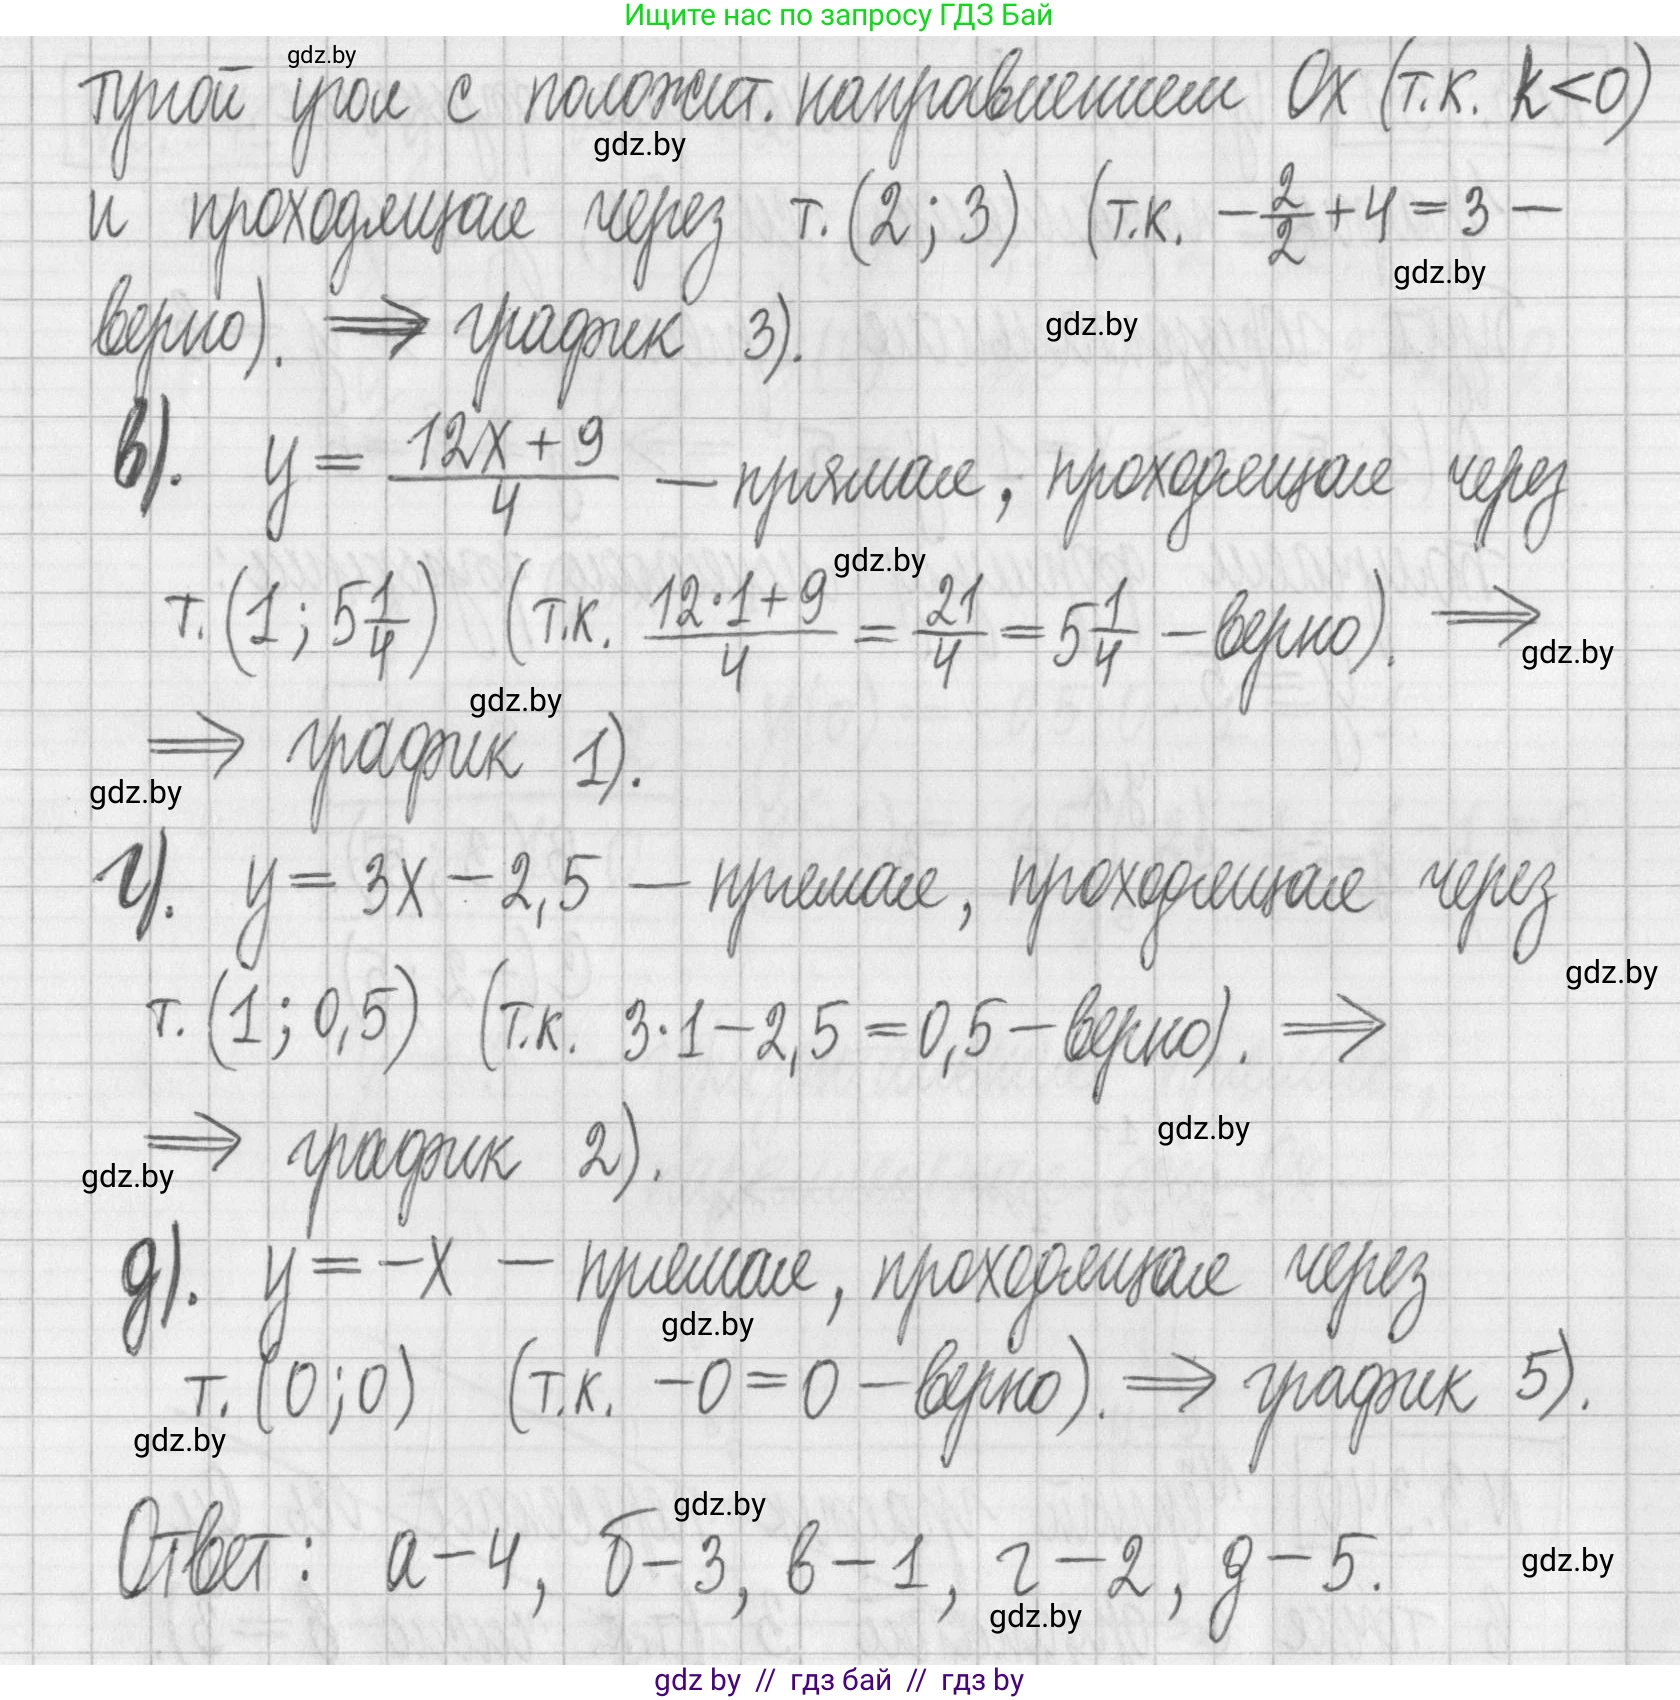 Ищите нас по запросу ГДЗ Бай
gdz.by
тупой угол с положит. направлением Ox (т.к. k<0)
gdz.by
и проходящая через т. (2; 3) (т.к. -2/2+4=3 -
gdz.by
верно). ⇒ график 3).
gdz.by
в). y = (12x+9)/4 - прямая, проходящая через
gdz.by
т. (1; 5 1/4) (т.к. (12·1+9)/4 = 21/4 = 5 1/4 - верно). ⇒
gdz.by
gdz.by
⇒ график 1).
gdz.by
г). y = 3x - 2,5 - прямая, проходящая через
gdz.by
т. (1; 0,5) (т.к. 3·1-2,5=0,5 - верно). ⇒
gdz.by
⇒ график 2).
gdz.by
д). y = -x - прямая, проходящая через
gdz.by
т. (0;0) (т.к. -0=0 - верно). ⇒ график 5).
gdz.by
gdz.by
Ответ: а-4, б-3, в-1, г-2, д-5.
gdz.by
gdz.by
gdz by // гдз бай // гдз by